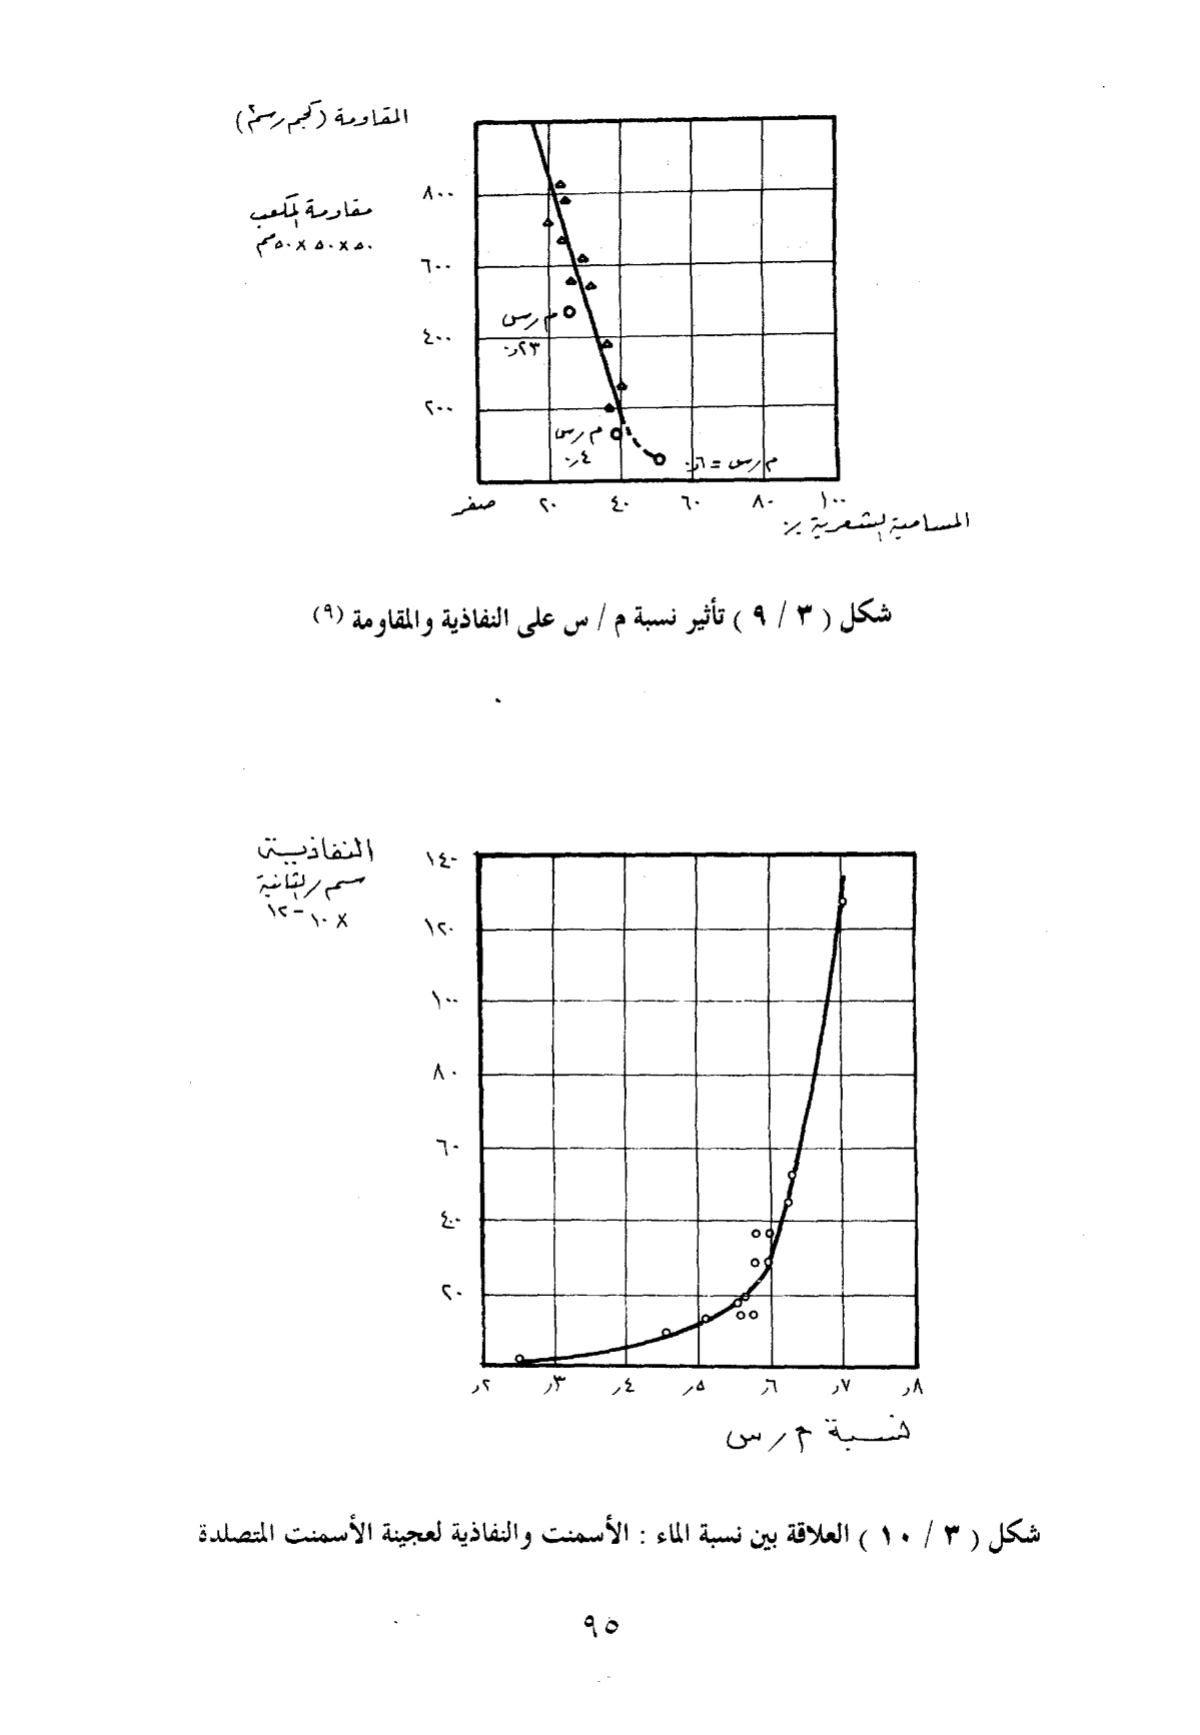 المقاومة (كجم/سم٢)
٨٠٠
مقاومة المكعب
٥٠ x ٥٠ x ٥٠ مم
٦٠٠
م/س
٤٠٠
٠,٢٣
٢٠٠
م/س
٠,٤
م/س = ٠,٦
صفر ٢٠ ٤٠ ٦٠ ٨٠ ١٠٠
المسامية الشعرية ٪
شكل ( ٣ / ٩ ) تأثير نسبة م / س على النفاذية والمقاومة (٩)
النفاذية
سم/الثانية
x ١٠-١٢
١٤٠
١٢٠
١٠٠
٨٠
٦٠
٤٠
٢٠
٢, ٣, ٤, ٥, ٦, ٧, ٨,
نسبة م/س
شكل ( ٣ / ١٠ ) العلاقة بين نسبة الماء : الأسمنت والنفاذية لعجينة الأسمنت المتصلدة
٩٥